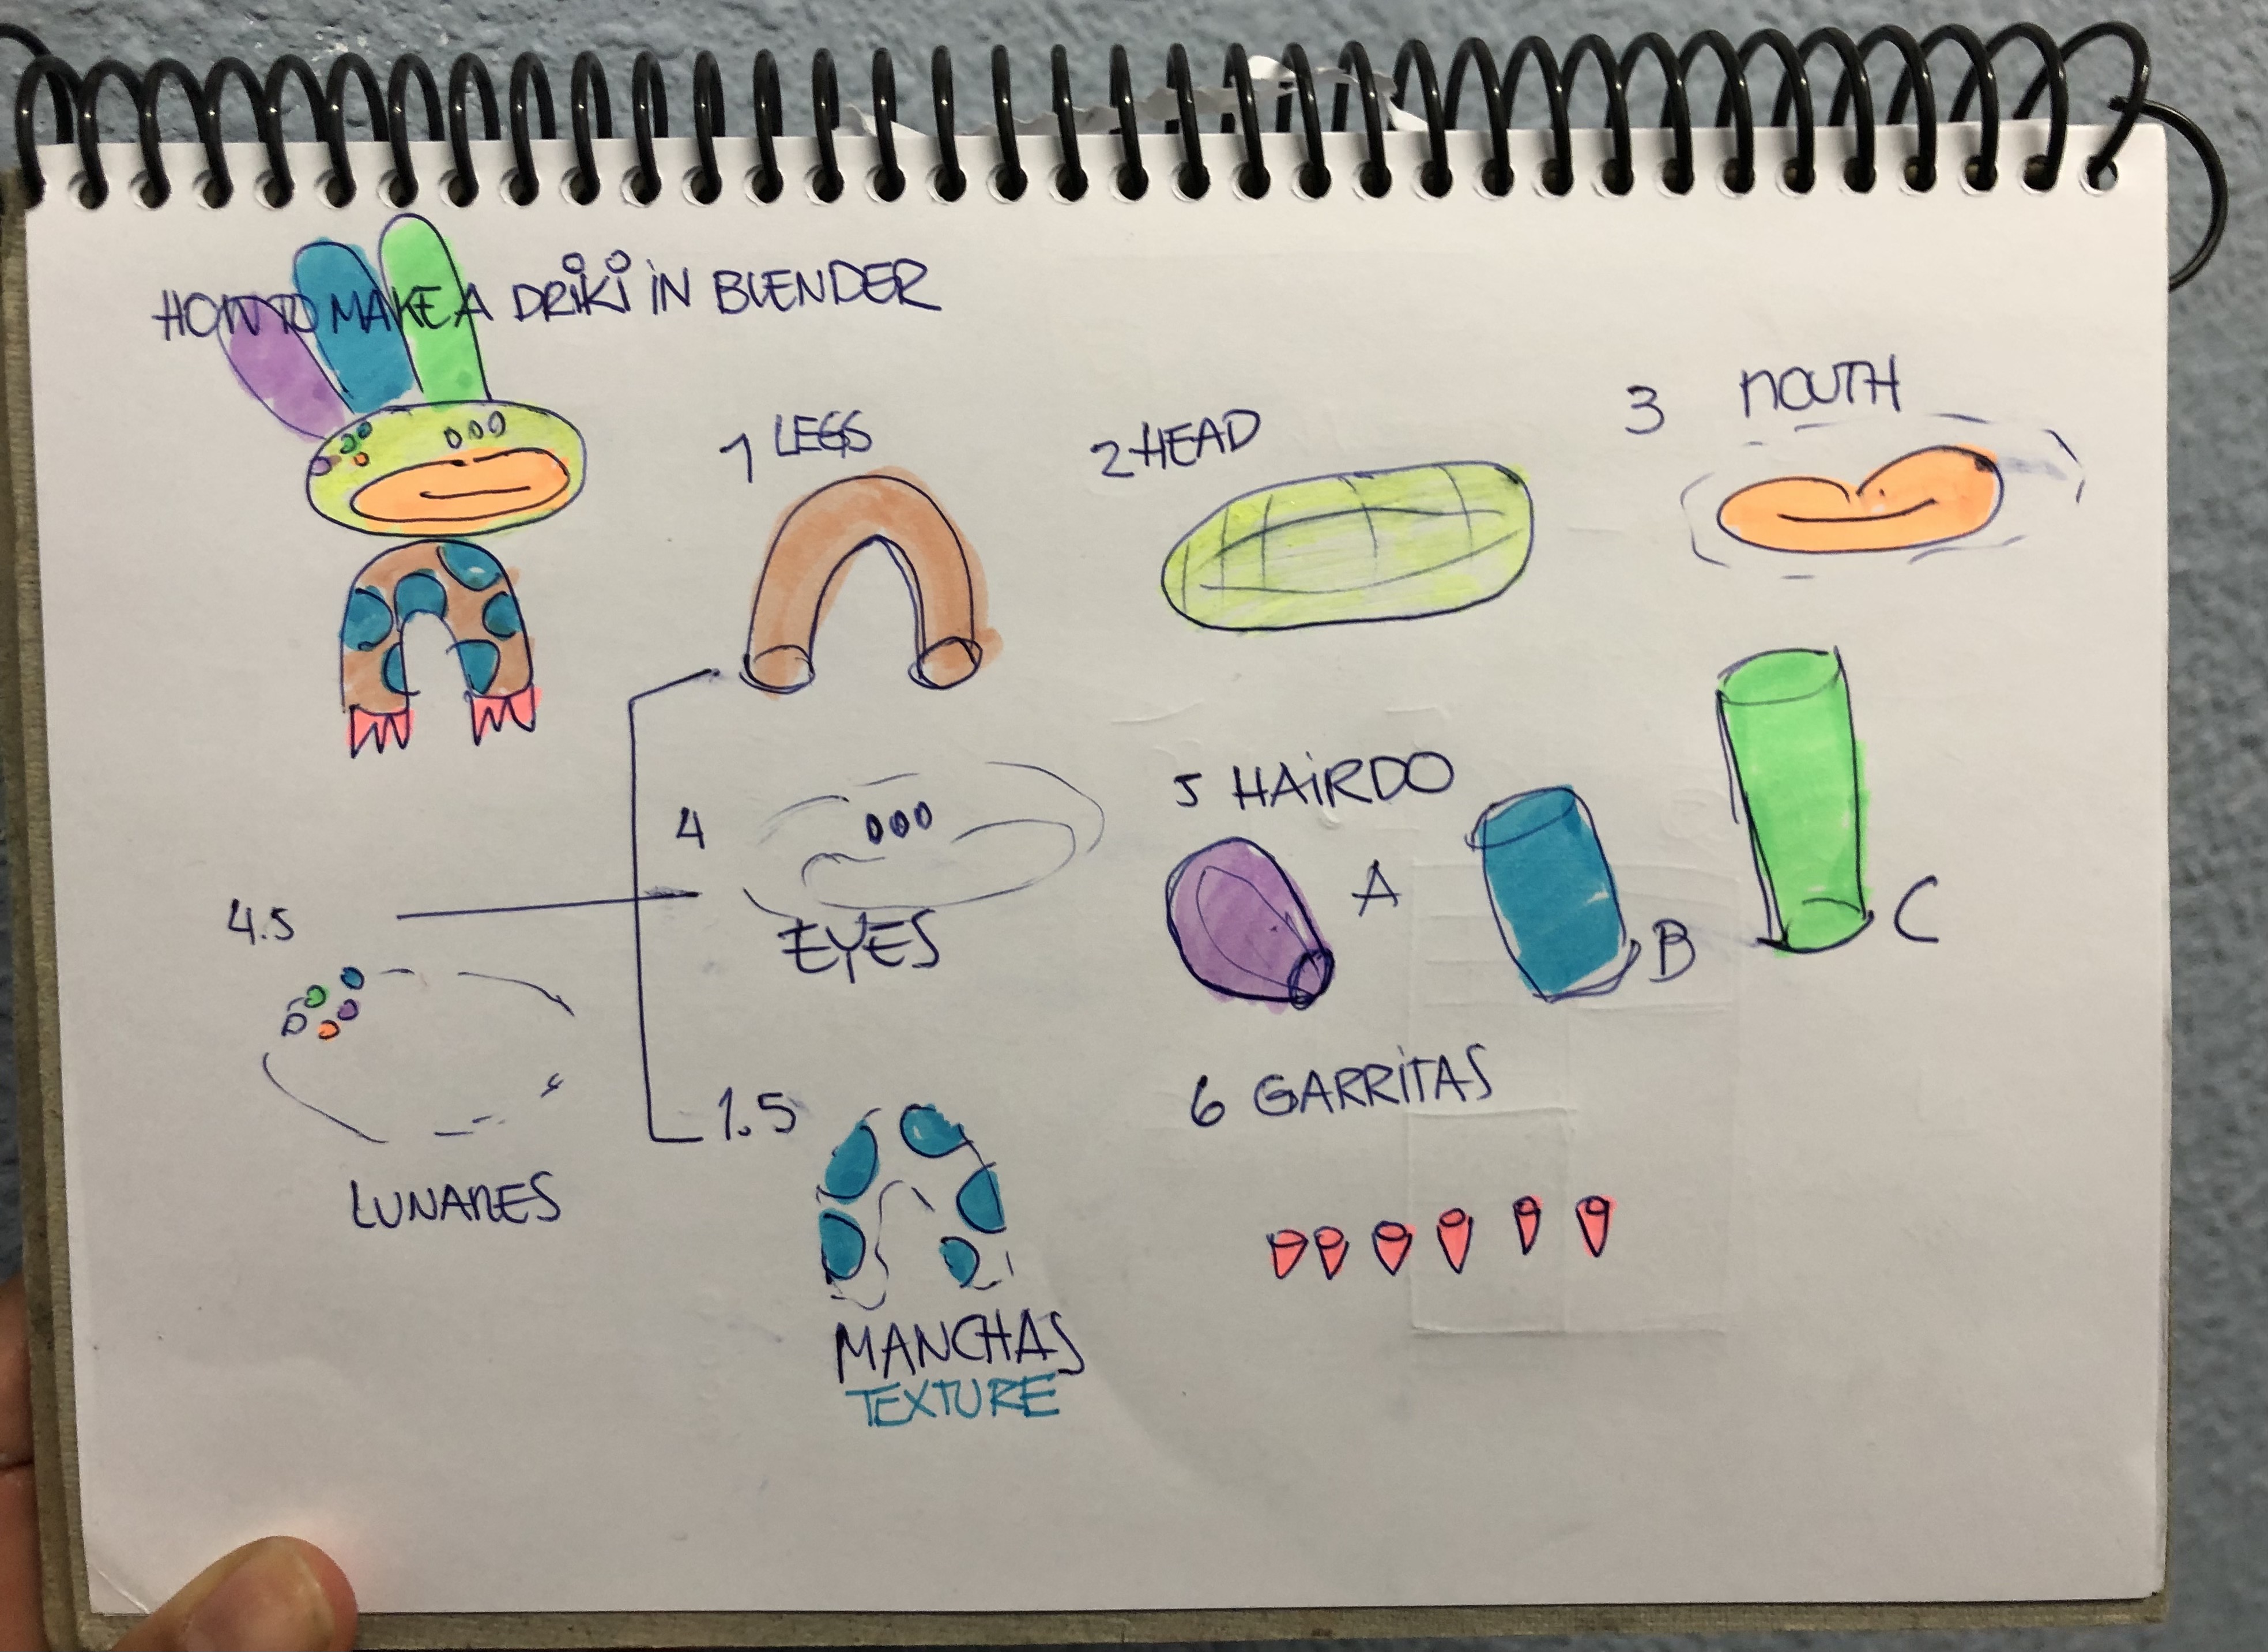 HOW TO MAKE A DRIKI IN BLENDER
1 LEGS
2 HEAD
3 MOUTH
4
EYES
4.5
LUNARES
1.5
MANCHAS
TEXTURE
5 HAIRDO
A
B
C
6 GARRITAS